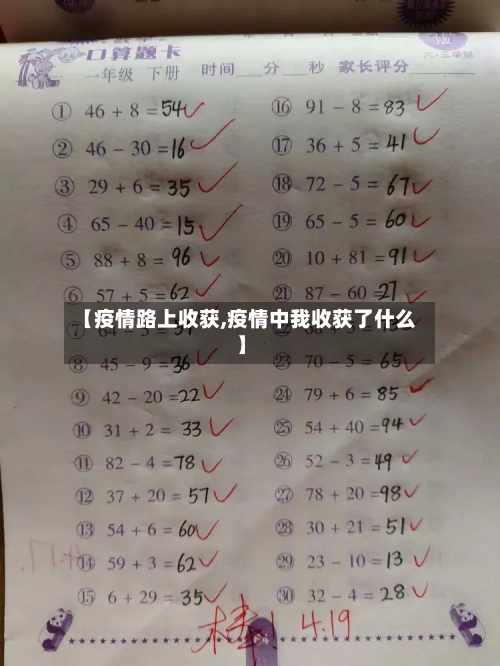 口算题卡
一年级 下册 时间 分 秒 家长评分
六·三学制
① 46 + 8 = 54
② 46 - 30 = 16
③ 29 + 6 = 35
④ 65 - 40 = 15
⑤ 88 + 8 = 96
⑥ 57 + 5 = 62
⑧ 45 - 9 = 36
⑨ 42 - 20 = 22
⑩ 31 + 2 = 33
⑪ 82 - 4 = 78
⑫ 37 + 20 = 57
⑬ 54 + 6 = 60
⑭ 59 + 3 = 62
⑮ 6 + 29 = 35
⑯ 91 - 8 = 83
⑰ 36 + 5 = 41
⑱ 72 - 5 = 67
⑲ 65 - 5 = 60
⑳ 10 + 81 = 91
㉑ 87 - 60 = 27
㉓ 70 - 5 = 65
㉔ 79 + 6 = 85
㉕ 54 + 40 = 94
㉖ 52 - 3 = 49
㉗ 78 + 20 = 98
㉘ 30 + 21 = 51
㉙ 23 - 10 = 13
㉚ 32 - 4 = 28
【疫情路上收获,疫情中我收获了什么
】
棒! 4.19